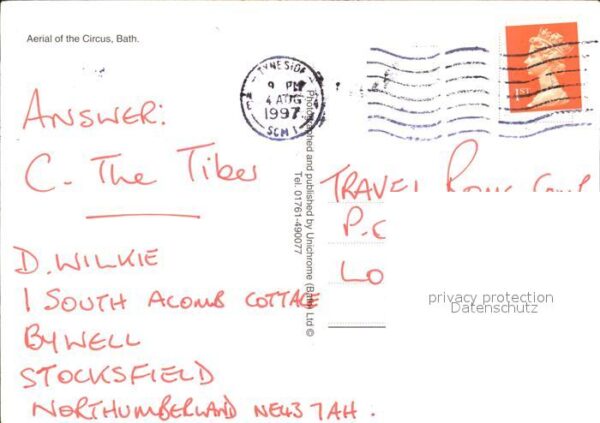 Aerial of the Circus, Bath.
TYNESIDE
9 PM
4 AUG
1997
SCM 1
1ST
ANSWER:
C. The Tiber
D. WILKIE
1 SOUTH ACOMB COTTAGE
BYWELL
STOCKSFIELD
NORTHUMBERLAND NE43 7AH.
Photographed and published by Unichrome (Bath) Ltd ©
Tel. 01761-490077
TRAVEL
P.
LO
privacy protection
Datenschutz